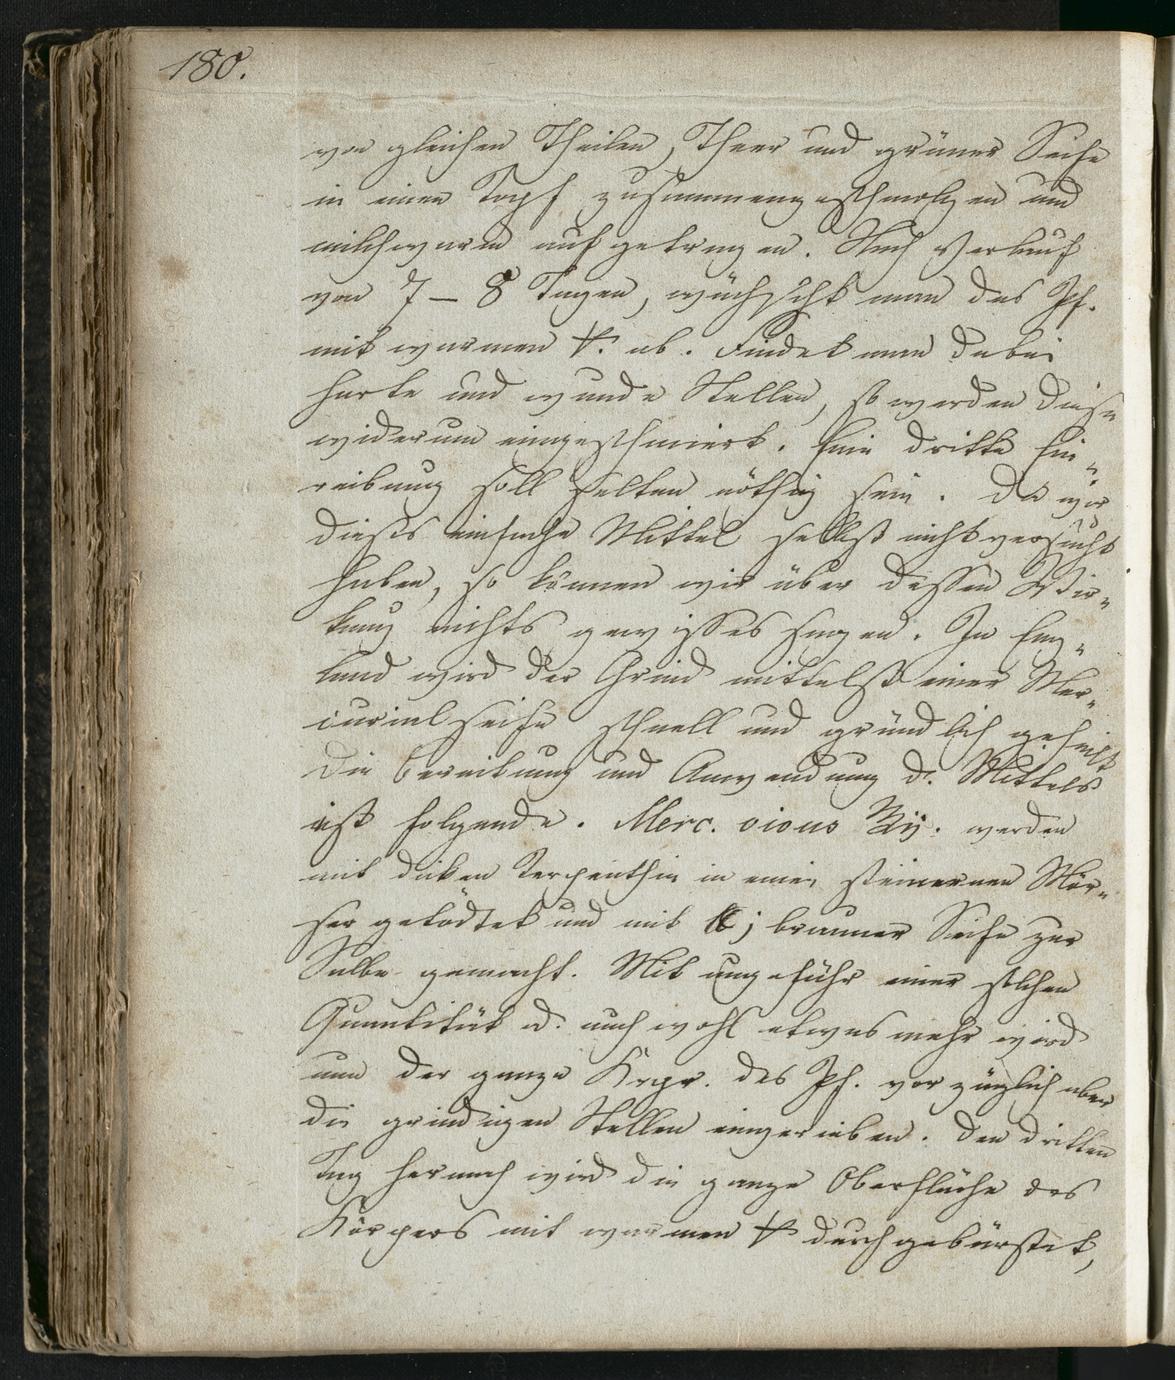 180.
von gleichen Theilen, Theer und grüner Seife
in einen Topf zusammengeschmolzen und
milchwarm aufgetragen. Nach Verlauf
von 7 – 8 Tagen, wäschht man das Pf.
mit warmen ab. Findet man dabei
harte und wunde Stellen, so werden diese
widerum eingeschmiert. Eine dritte Ein„
reibung soll selten nöthig sein. Da wir
dieses einfache Mittel selbst nicht versucht
haben, so können wir über dessen Wir„
kung nichts gewisses sagen. In Eng„
land wird der Grind mittelst einer Mer„
curialseife schnell und gründlich geheilt
Die Bereitung und Anwendung d. Mittels
ist folgende. Merc. vivus ℥ij. werden
mit dicken Terpenthin in einen steinernen Mör„
ser getödtet und mit ℔j brauner Seife zur
Salbe gemacht. Mit ungefähr einer solchen
Quantität od. auch wohl etwas mehr wird
nun der ganze Krpr. des Pf. vorzüglich aber
die grindigen Stellen eingerieben. Den dritten
Tag hernach wird die ganze Oberfläche des
Körpers mit warmen durchgebürstet,